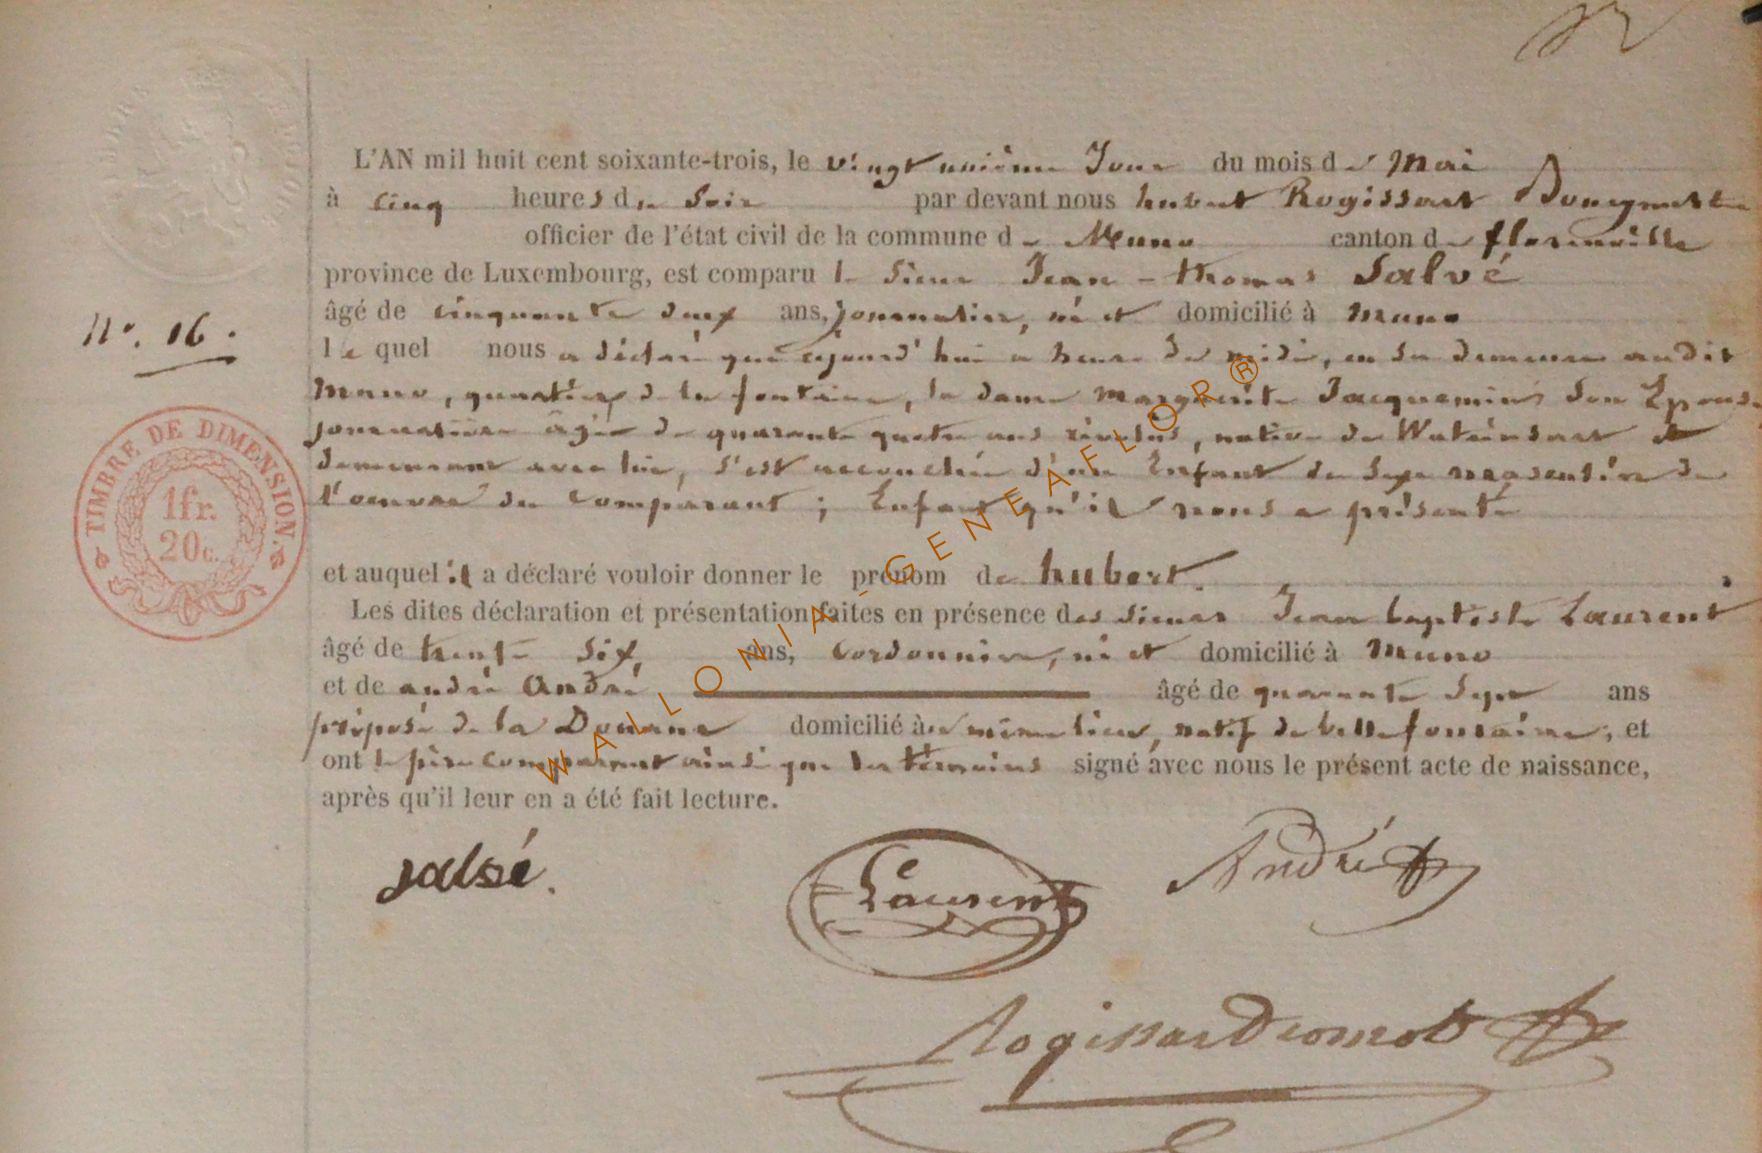 L'AN mil huit cent soixante-trois, le vingt unième Jour du mois de Mai
à cinq heures du Soir par devant nous hubert Rogissart Bourgmestre
officier de l'état civil de la commune de Muno canton de florenville
province de Luxembourg, est comparu le Sieur Jean - thomas Salvé
âgé de cinquante deux ans, journalier, né et domicilié à Muno
N°. 16.
le quel nous a déclaré que cejourd'hui a heure de midi, en sa demeure audit
Muno, quartier de la fontaine, la dame Marguerite Jacquemin son Epouse
journalière âgée de quarante quatre ans révolus, native de Watrinsart et
demeurant avec lui, s'est accouchée d'un Enfant de Sexe masculin de
l'oeuvre du Comparant ; Enfant qu'il nous a présenté
TIMBRE DE DIMENSION.
1fr.
20c.
et auquel il a déclaré vouloir donner le prénom de hubert.
Les dites déclaration et présentation faites en présence des sieurs Jean baptiste Laurent
âgé de trente Six, ans, Cordonnier, né et domicilié à Muno
et de andré André âgé de quarante Sept ans
préposé de la Douane domicilié au même lieu, natif de bellefontaine, et
ont le père comparant ainsi que les témoins signé avec nous le présent acte de naissance,
après qu'il leur en a été fait lecture.
salvé.
Laurent
André
WALLONIA-GENEAFLOR®